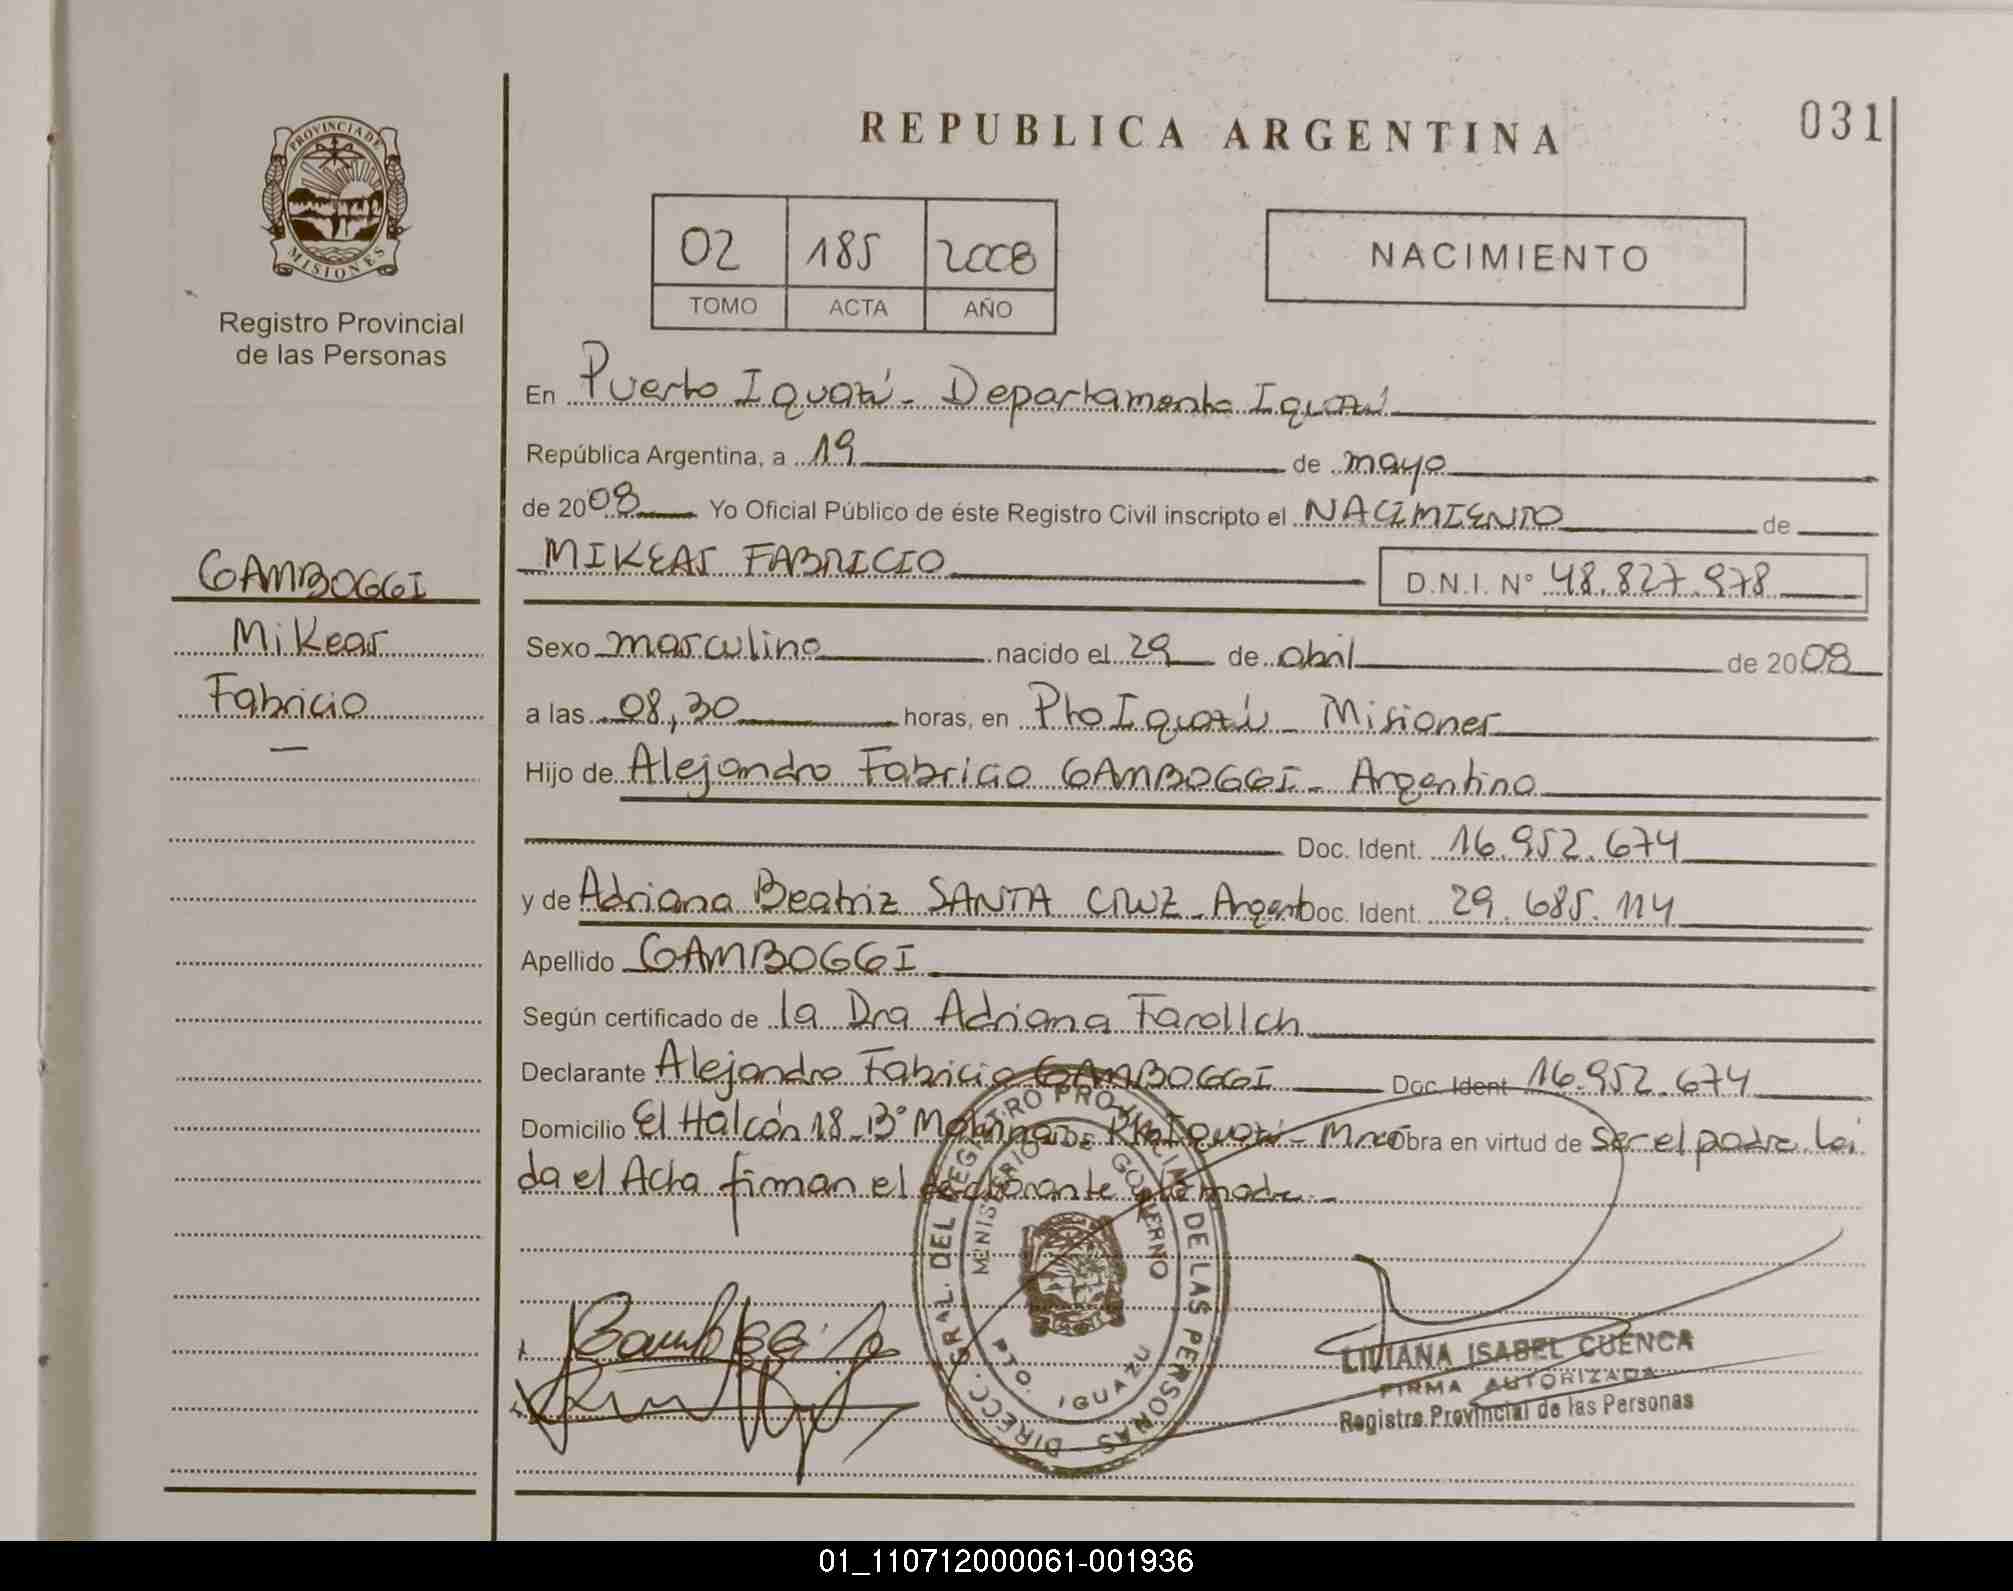 REPUBLICA ARGENTINA
031
PROVINCIA DE
MISIONES
Registro Provincial
de las Personas
02 185 2008
TOMO ACTA AÑO
NACIMIENTO
En Puerto Iguazú - Departamento Iguazú
República Argentina, a 19 de mayo
de 2008 Yo Oficial Público de éste Registro Civil inscripto el NACIMIENTO de
MIKEAS FABRICIO D.N.I. N° 48.827.978
GAMBOGGI
Mikeas
Fabricio
Sexo masculino nacido el 29 de abril de 2008
a las 08,30 horas, en Pto Iguazú - Misiones
Hijo de Alejandro Fabricio GAMBOGGI - Argentino
Doc. Ident. 16.952.674
y de Adriana Beatriz SANTA CRUZ - Argent Doc. Ident. 29.685.114
Apellido GAMBOGGI
Según certificado de la Dra Adriana
Declarante Alejandro Fabricio GAMBOGGI Doc. Ident 16.952.674
Domicilio El Halcón 18 - B° Pto Iguazú - Mnes Obra en virtud de ser el padre. Lei
da el Acta firman el declarante y la madre -
DIRECC. GRAL. DEL REGISTRO PROVINCIAL DE LAS PERSONAS
MINISTERIO DE GOBIERNO
PTO. IGUAZU
LILIANA ISABEL CUENCA
FIRMA AUTORIZADA
Registro Provincial de las Personas
01_110712000061-001936